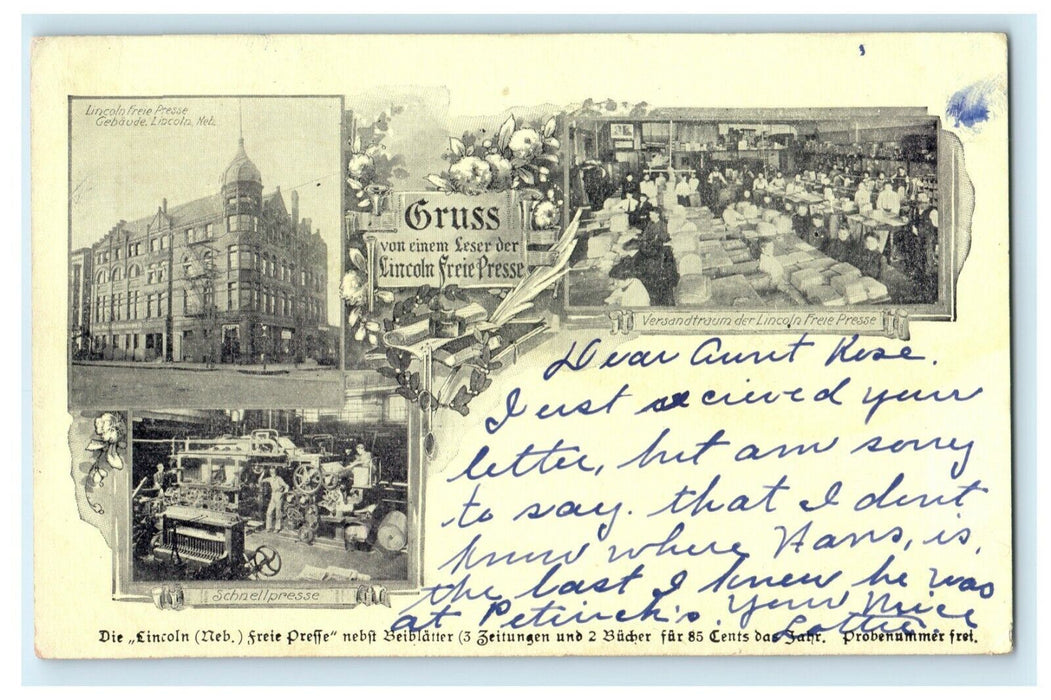 Lincoln Freie Presse
Gebäude. Lincoln, Neb.
Gruss
von einem Leser der
Lincoln Freie Presse
Versandtraum der Lincoln Freie Presse
Dear Aunt Rose.
I just recieved your
letter, but am sorry
to say. that I dont
know where Hans, is,
the last I knew he was
at Petinck's. Your Niece
Lottie.
Schnellpresse
Die „Lincoln (Neb.) Freie Presse“ nebst Beiblätter (3 Zeitungen und 2 Bücher für 85 Cents das Jahr. Probenummer frei.